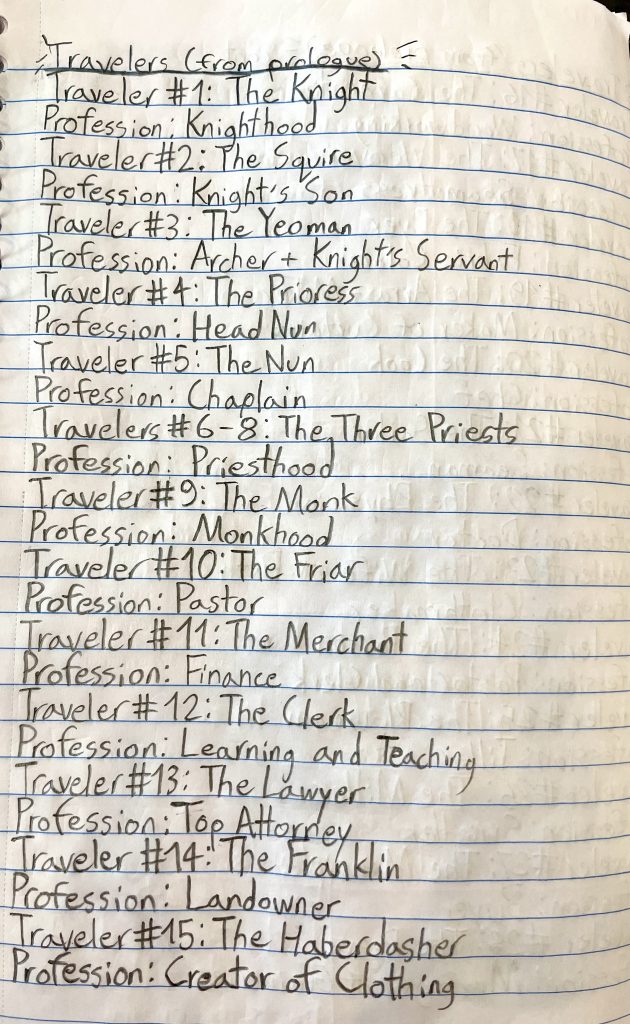 Travelers (from prologue)
Traveler #1: The Knight
Profession: Knighthood
Traveler #2: The Squire
Profession: Knight's Son
Traveler #3: The Yeoman
Profession: Archer + Knight's Servant
Traveler #4: The Prioress
Profession: Head Nun
Traveler #5: The Nun
Profession: Chaplain
Travelers #6-8: The Three Priests
Profession: Priesthood
Traveler #9: The Monk
Profession: Monkhood
Traveler #10: The Friar
Profession: Pastor
Traveler #11: The Merchant
Profession: Finance
Traveler #12: The Clerk
Profession: Learning and Teaching
Traveler #13: The Lawyer
Profession: Top Attorney
Traveler #14: The Franklin
Profession: Landowner
Traveler #15: The Haberdasher
Profession: Creator of Clothing